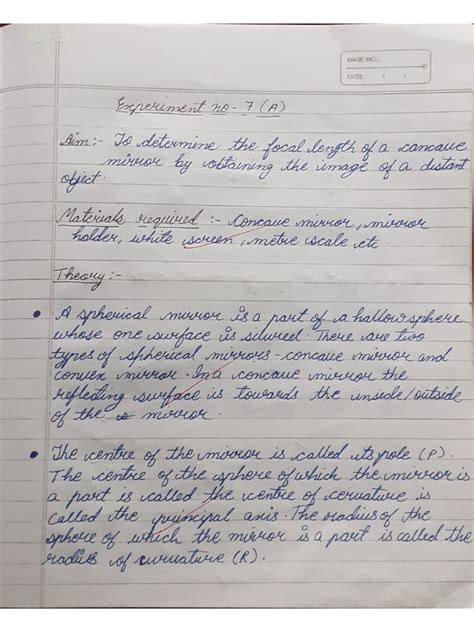 PAGE NO.:
DATE: / /
Experiment no - 7 (A)
Aim:- To determine the focal length of a concave
mirror by obtaining the image of a distant
object.
Materials required :- Concave mirror, mirror
holder, white screen, metre scale etc.
Theory:-
• A spherical mirror is a part of a hallow sphere
whose one surface is silvered. There are two
types of spherical mirrors - concave mirror and
convex mirror. In a concave mirror the
reflecting surface is towards the inside/outside
of the mirror.
• The centre of the mirror is called its pole (P).
The centre of the sphere of which the mirror is
a part is called the centre of cervature is
called the principal axis. The radius of the
sphere of which the mirror is a part is called the
radius of curvature (R).